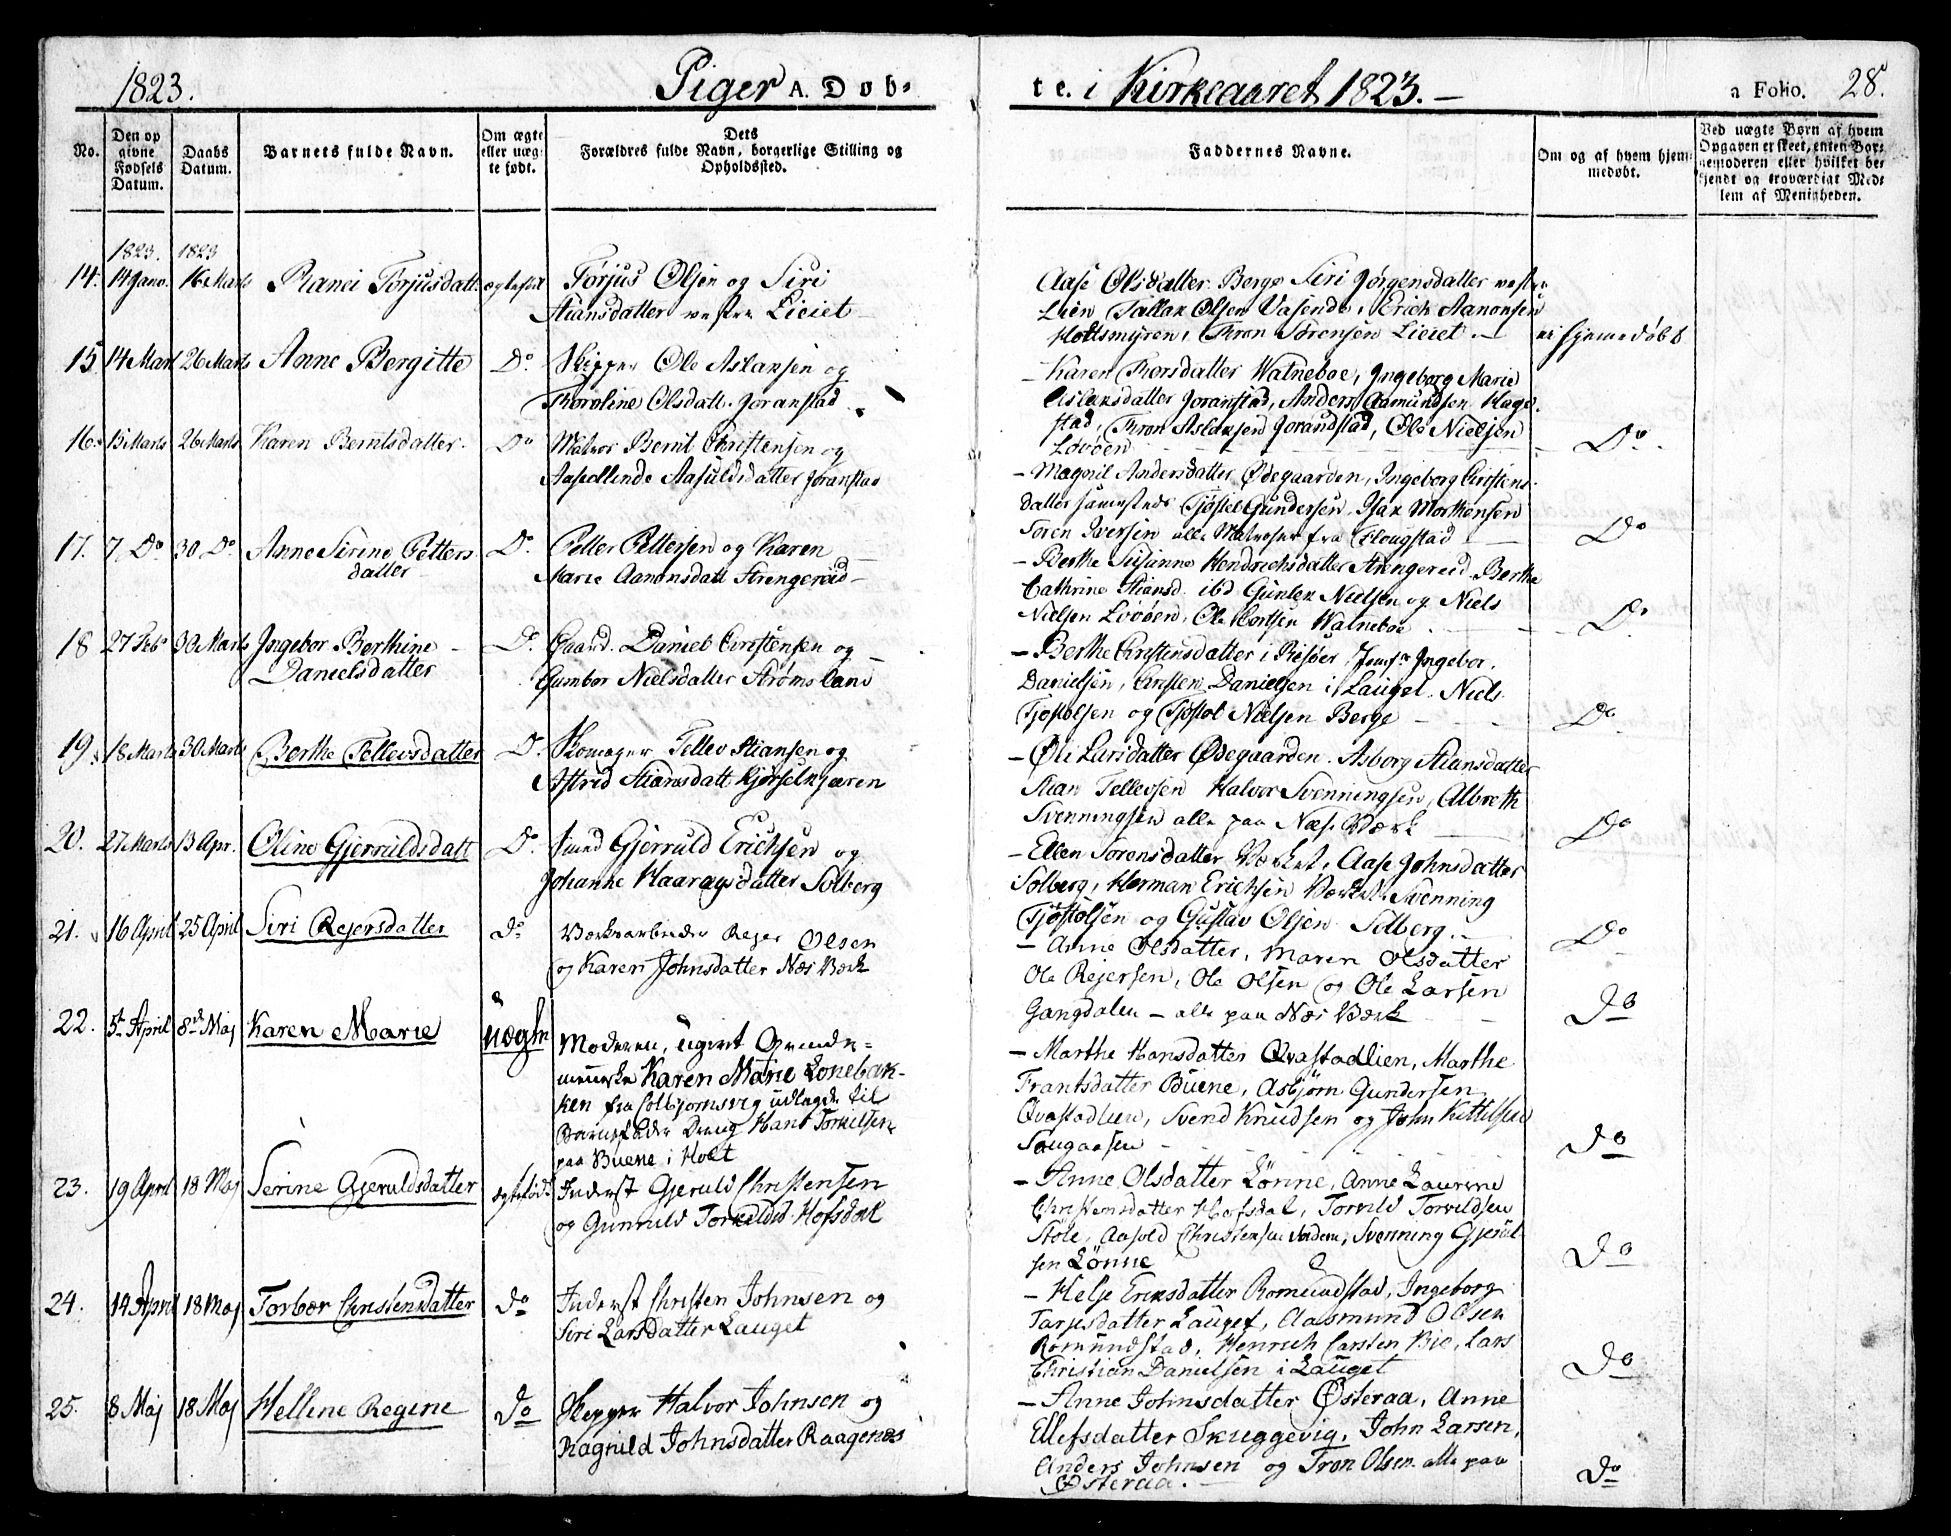 1823.
Piger A. Døb-
te. i Kirkeaaret 1823. —
a Folio. 28.
No.
Den op
givne
Fødsels
Datum.
Daabs
Datum.
Barnets fulde Navn.
Om ægte
eller uæg-
te født.
Dets
Forældres fulde Navn, borgerlige Stilling og
Opholdssted.
Faddernes Navne.
Om og af hvem hjem-
medøbt.
Ved uægte Børn af hvem
Opgaven er skeet, enten Bar-
nemoderen eller hvilket be-
kjendt og troværdigt Med-
lem af Menigheden.
1823. 1823
14. 14 Janv. 16 Marts Ranei Torjusdatt. ægtefød Torjus Olsen og Siri
Stiansdatter vestre Lieiet
Aase Olsdatter Berge Siri Jørgensdatter vestre
Lien Tallak Olsen Vasende, Erich Aanonsen
Holtsmyren, Thron Sørensen Lieiet. —
ei hjemedøbt
15 14 Mart 26 Marts Anne Bergitte Do. Skipper Ole Aslaksen og
Thoroline Olsdatt. Joranstad.
— Karen Thorsdatter Watneboe, Ingeborg Marie
Aslaksdatter Joranstad, Anders Aamundsen Hage-
stad, Thron Aslaksen Jorandstad, Ole Nielsen
Lovøen
Do.
16. 15 Marts 26 Marts Karen Berntsdatter. Do Matros Bernt Christensen og
Aaseollinde Aasuldsdatter Joranstad
— Magnil Andersdatter Ødegaarden, Ingeborg Christens-
datter sammesteds Tjøstel Gundersen, Isak Morthensen
Soren Iversen alle Matroser fra Flougstad
Do
17. 7. Do 30 Do Anne Sirine Petters
datter
Do. Petter Pettersen og Karen
Marie Aanonsdatt Strengereid —
— Berthe Susanne Hendrichsdatter Strengereid Berthe
Cathrine Stiansd. ibd. Gunlek Nielsen og Niels
Nielsen Lovøen, Ole Watneboe
Do.
18 27 Feb. 30 Marts Ingebor Berthine
Danielsdatter
Do. Gaard. Daniel Christensen og
Gumbor Nielsdatter Strømsland
— Berthe Christensdatter i Risøer, Jomfr Ingebor.
Danielsen, Christen Danielsen i Lauget. Niels
Tjøstolsen og Tjøstol Nielsen Berge
Do.
19. 18 Marts 30 Marts Berthe Tellevsdatter Do. Skomager Tellev Stiansen og
Astrid Stiansdatt Kjørselkjæren
— Øli Larsdatter Ødegaarden. Asborg Stiansdatter
Stian Tellevsen Halvor Svenningsen, Albreth
Svenningsen alle paa Næs Værk
Do
20. 27 Marts 13 Apr. Oline Gjeruldsdatt Do. Smed Gjerruld Erichsen og
Johanne Haaragsdatter Solberg
— Ellen Sorensdatter Værket, Aase Johnsdatter
Solberg, Herman Erichsen Værket. Svenning
Tjøstolsen og Gustav Olsen Solberg.
Do
21. 16 April 25 April Siri Rejersdatter do Værksarbeider Rejer Olsen
og Karen Johnsdatter Næs Værk
— Anne Olsdatter, Maren Olsdatter
Ole Rejersen, Ole Olsen og Ole Larsen
Gangdalen — alle paa Næs Værk
do
22. 5t April 8de Maj Karen Marie uægte
Moderen, ugivt Qvinde-
menneske Karen Marie Lonebak-
ken fra Colbjornsvig udlagde til
Barnefader Dreng Hans Torkilsen
paa Buene i Holt
— Marthe Hansdatter Qvastadlien, Marthe
Frantsdatter Buene, Asbjørn Gundersen
Qvastadlien, Svend Knudsen og John Kittilsen
Saugaasen
do
23. 19 April 18 Maj Serine Gjeruldsdatter ægtefød. Inderst Gjeruld Christensen
og Gunnuld Torkildsd. Hofsdal
— Anne Olsdatter Lönne, Anne Laurine
Christensdatter Hofsdal, Torvild Torvildsen
Stole, Aasold Christensen, Svenning Gjerul-
sen Lönne
do
24. 14 April 18 Maj Torbør Christensdatter do Inderst Christen Johnsen og
Siri Larsdatter Lauget
— Helje Eriksdatter Romundstad, Ingeborg
Tarjesdatter Lauget, Aasmund Olsen
Romundstad, Henrich Carsten Bie, Lars
Christian Danielsen i Lauget
do
25. 8 Maj 18 Maj Helline Regine do Skipper Halvor Johnsen og
Ragnild Johnsdatter Raagenæs
— Anne Johnsdatter Østeraa, Anne
Ellefsdatter Skuggevig, John Larsen,
Anders Johnsen og Tron Olsen alle paa
Østeraa.
do